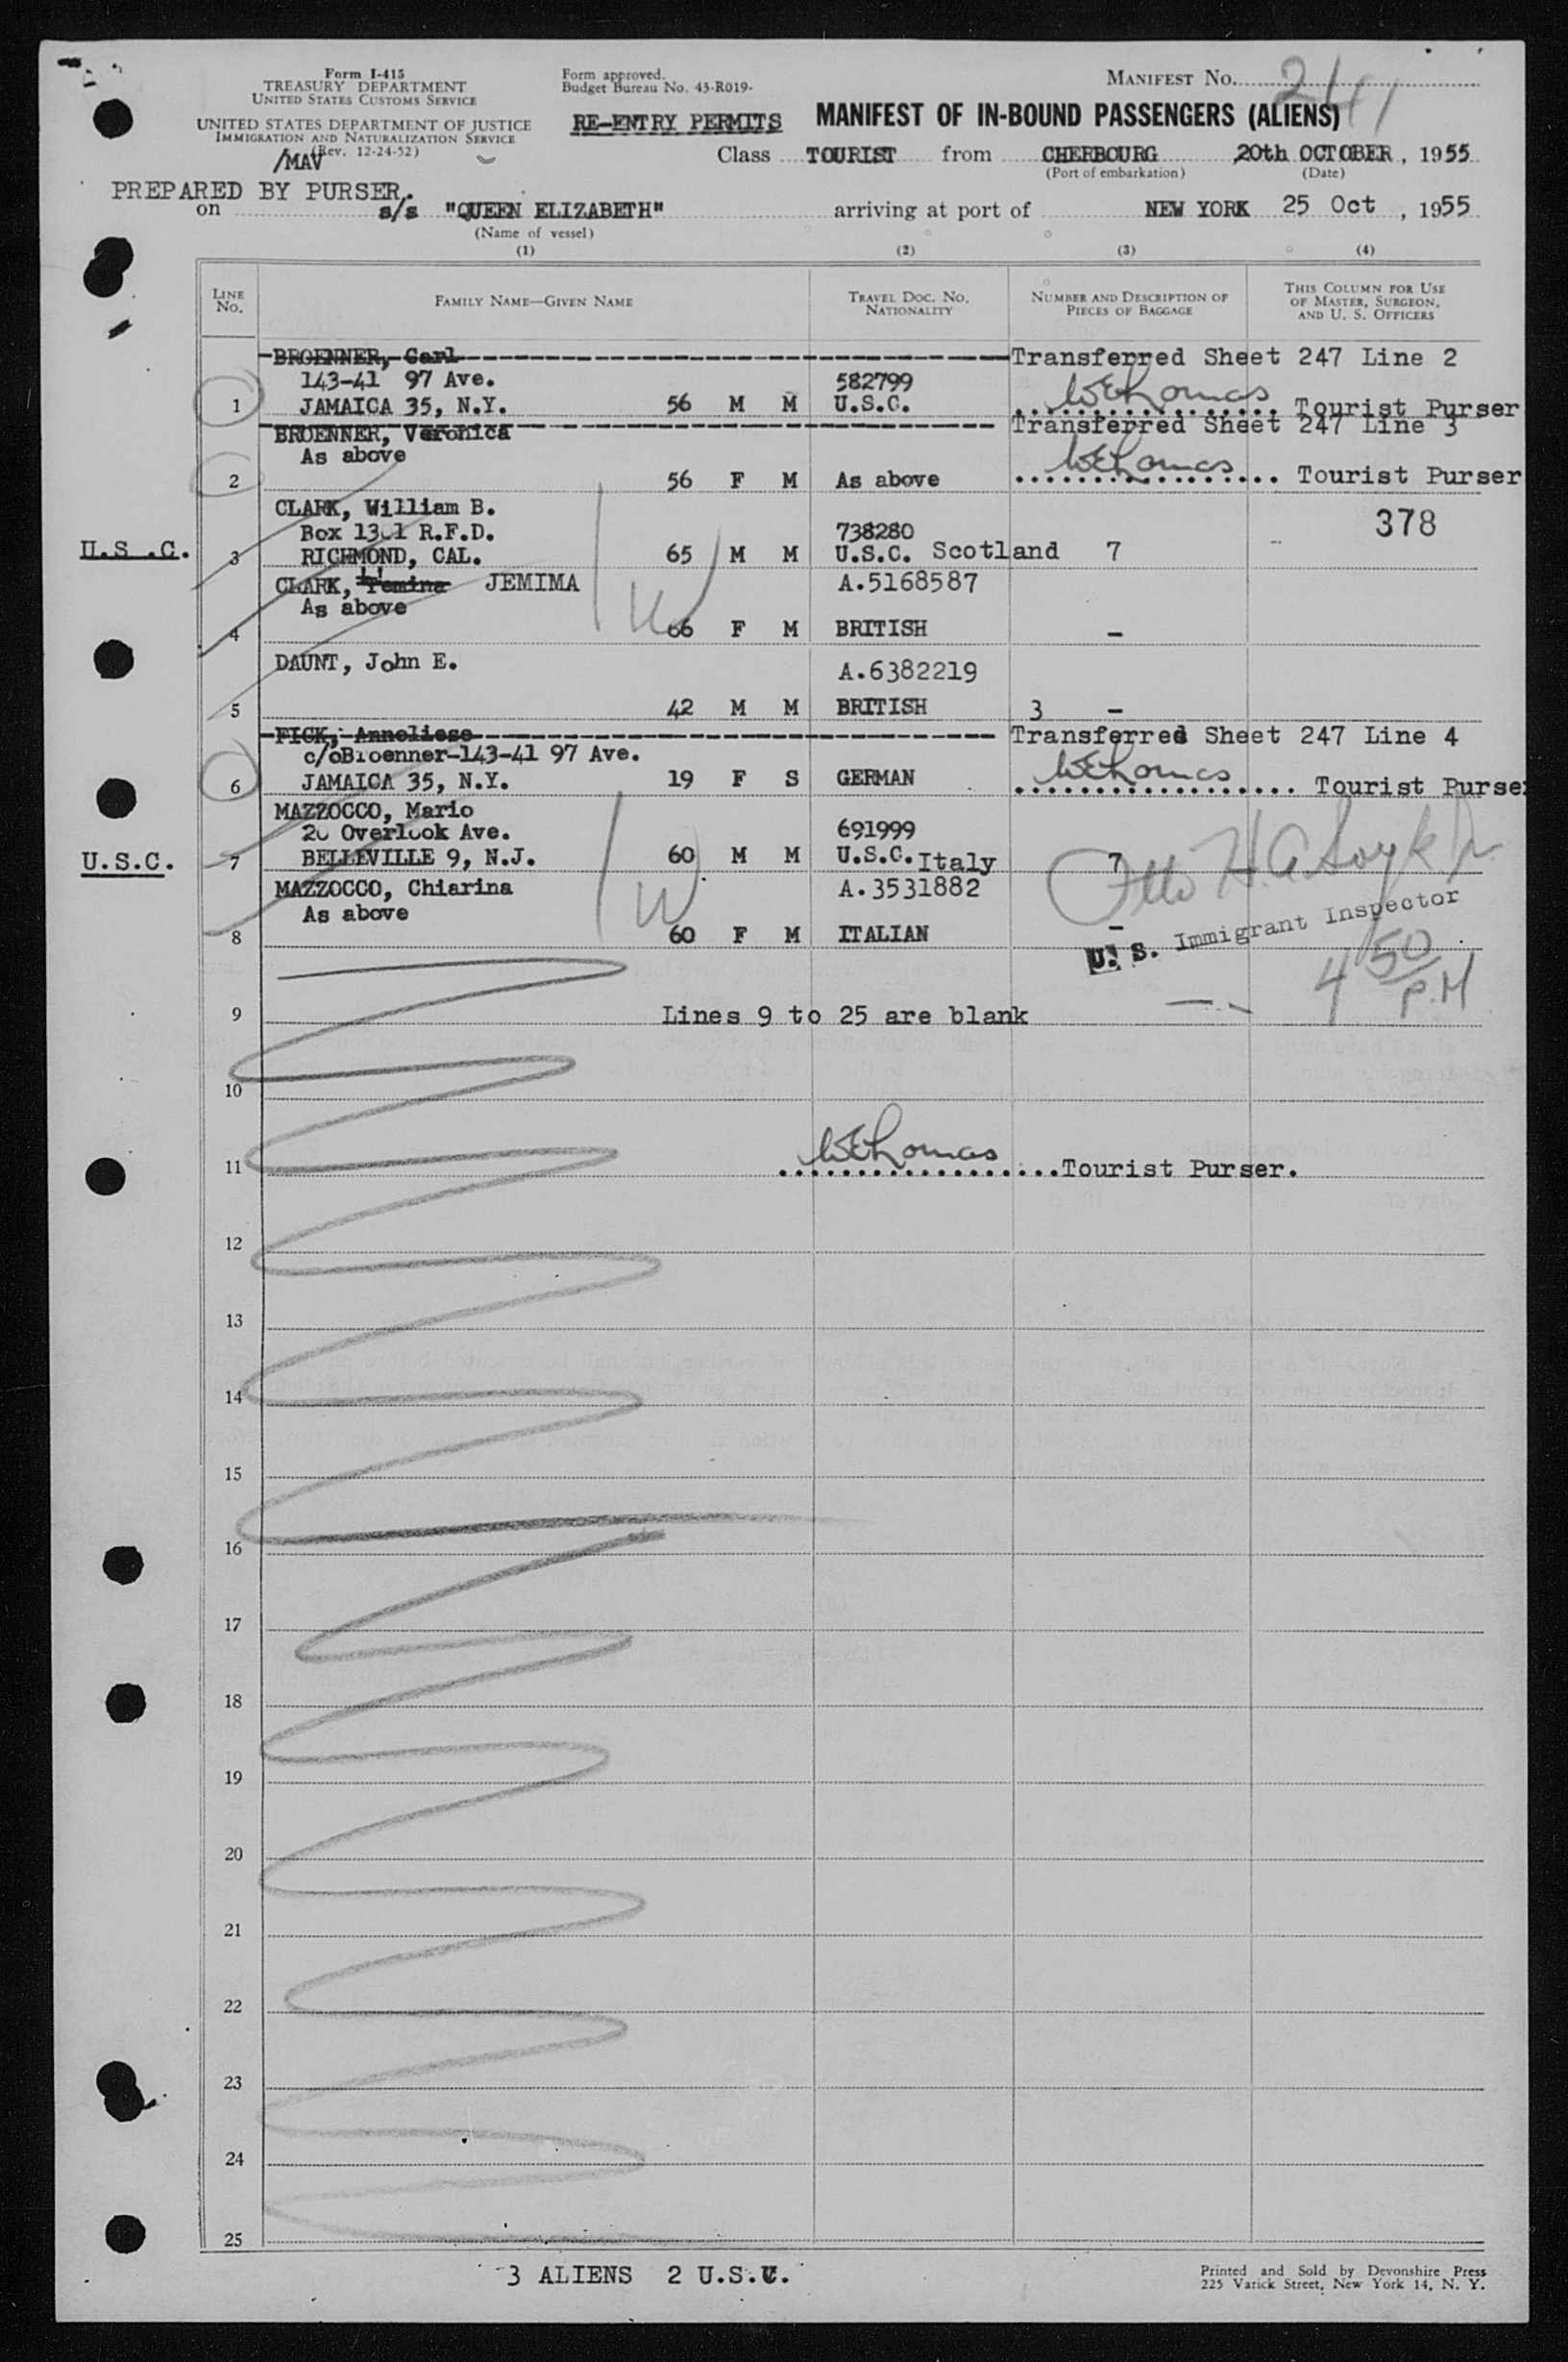 Form I-415
TREASURY DEPARTMENT
UNITED STATES CUSTOMS SERVICE
UNITED STATES DEPARTMENT OF JUSTICE
IMMIGRATION AND NATURALIZATION SERVICE
(Rev. 12-24-52)
/MAV
Form approved.
Budget Bureau No. 43-R019-
RE-ENTRY PERMITS
MANIFEST NO.
MANIFEST OF IN-BOUND PASSENGERS (ALIENS)
Class TOURIST from CHERBOURG 20th OCTOBER, 1955
(Port of embarkation) (Date)
PREPARED BY PURSER.
on s/s "QUEEN ELIZABETH" arriving at port of NEW YORK 25 Oct, 1955
(Name of vessel)
(1) (2) (3) (4)
LINE NO.
FAMILY NAME—GIVEN NAME
TRAVEL DOC. NO. NATIONALITY
NUMBER AND DESCRIPTION OF PIECES OF BAGGAGE
THIS COLUMN FOR USE OF MASTER, SURGEON, AND U. S. OFFICERS
BROENNER, Carl Transferred Sheet 247 Line 2
143-41 97 Ave. 582799
1 JAMAICA 35, N.Y. 56 M M U.S.C. WEThomas Tourist Purser
BROENNER, Veronica Transferred Sheet 247 Line 3
As above
2 56 F M As above WEThomas Tourist Purser
CLARK, William B. 378
Box R.F.D. 738280
U.S.C. 3 RICHMOND, CAL. 65 M M U.S.C. Scotland 7
CLARK, JEMIMA A.5168587
As above
4 66 F M BRITISH –
DAUNT, John E. A.6382219
5 42 M M BRITISH 3 –
FICK, Anneliese Transferred Sheet 247 Line 4
c/oBroenner-143-41 97 Ave.
6 JAMAICA 35, N.Y. 19 F S GERMAN WEThomas Tourist Purser
MAZZOCCO, Mario
Overlook Ave. 691999
U.S.C. 7 BELLEVILLE 9, N.J. 60 M M U.S.C. Italy 7
MAZZOCCO, Chiarina A.3531882
As above
8 60 F M ITALIAN –
U. S. Immigrant Inspector
4 50 P.M
9 Lines 9 to 25 are blank
10
11 WEThomas Tourist Purser.
12
13
14
15
16
17
18
19
20
21
22
23
24
25
3 ALIENS 2 U.S.C.
Printed and Sold by Devonshire Press
225 Varick Street, New York 14, N. Y.